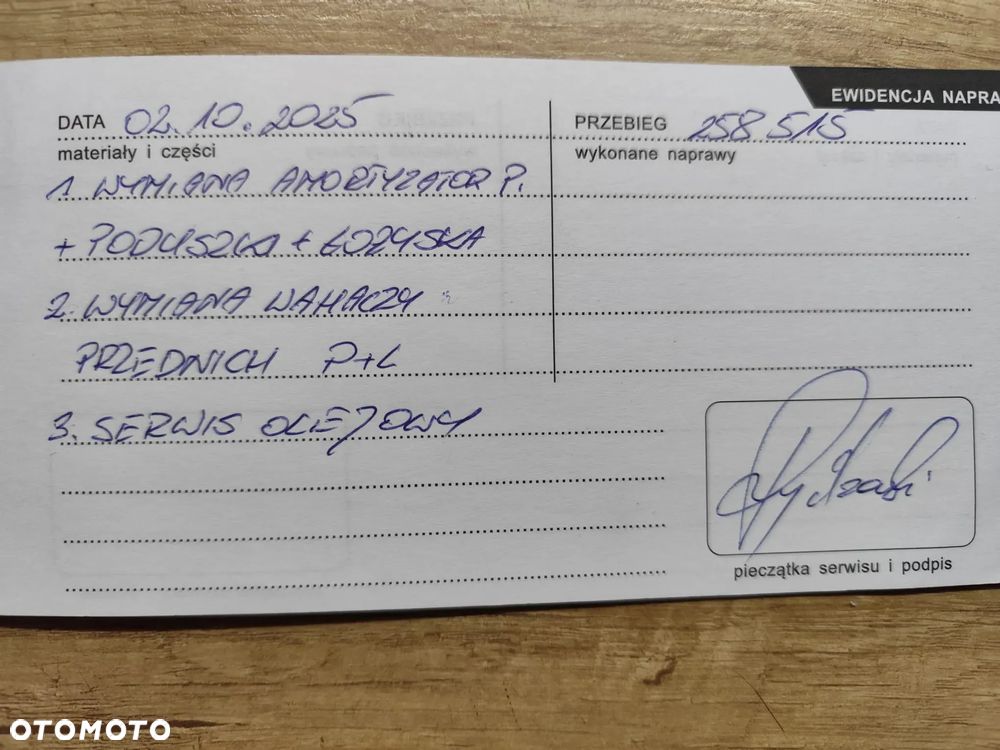 EWIDENCJA NAPRA
DATA 02.10.2025
PRZEBIEG 258 515
materiały i części
wykonane naprawy
1. WYMIANA AMORTYZATOR P.
+ PODUSZKA + ŁOŻYSKA
2. WYMIANA WAHACZY
PRZEDNICH P+L
3. SERWIS OLEJOWY
pieczątka serwisu i podpis
OTOMOTO